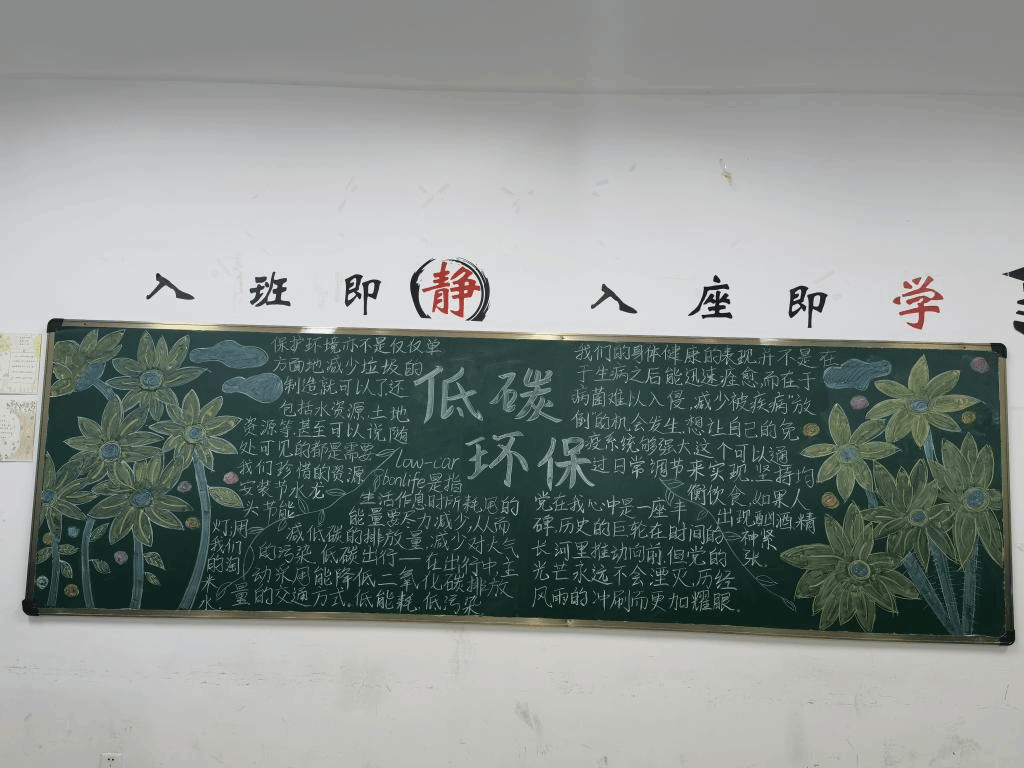 入班即静 入座即学
低碳
环保
保护环境亦不是仅仅单
方面地减少垃圾的
制造就可以了还
包括水资源、土地
资源等,甚至可以说,随
处可见的都是需要
我们珍惜的资源
安装节水龙
头节能
灯,用
我们
的淘
米
水.
low-car
bonlife是指
生活作息时所耗尽的
能量要尽力减少,从而
减低碳的排放量,减少对大气
的污染,低碳出行一在出行中,主
动采用能降低二氧化碳排放
量的交通方式.低能耗,低污染
我们的身体健康的表现并不是在
于生病之后能迅速痊愈,而在于
病菌难以入侵,减少被疾病"放
倒"的机会发生,想让自己的免
疫系统够强大,这个可以通
过日常调节来实现,坚持均
衡饮食.如果人
出现酗酒,精
神紧
张.
党在我心中是一座丰
碑,历史的巨轮在时间的
长河里推动向前但党的
光芒永远不会湮灭,历经
风雨的冲刷而更加耀眼.